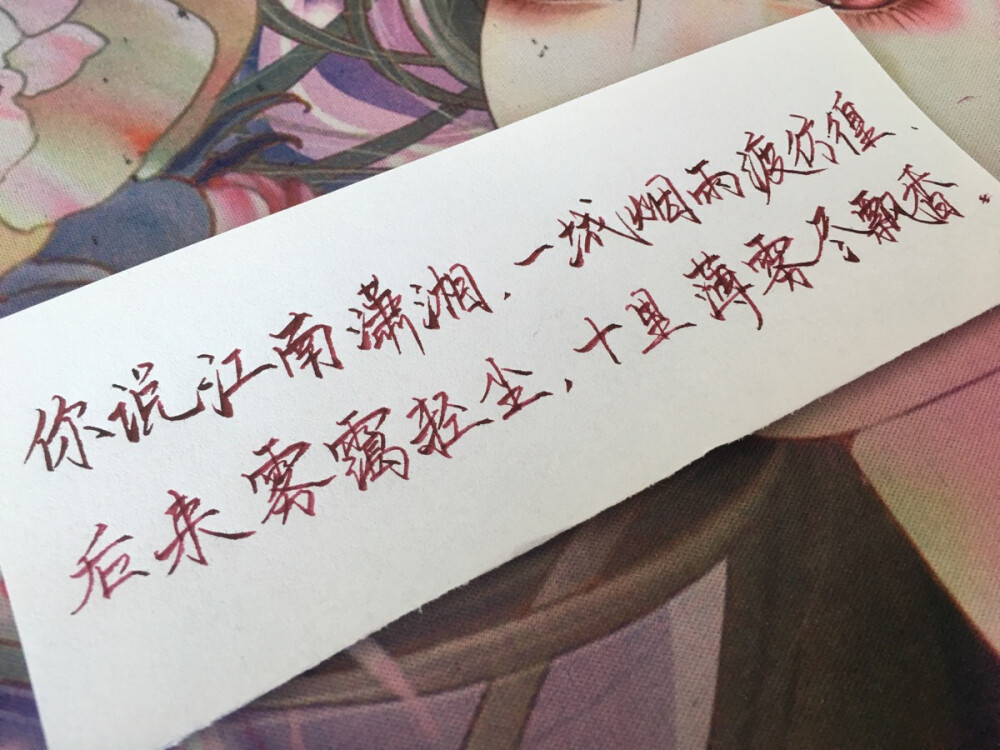 你说江南潇湘.一城烟雨渡彷徨.
后来雾霭轻尘,十里薄雾尽飘香.